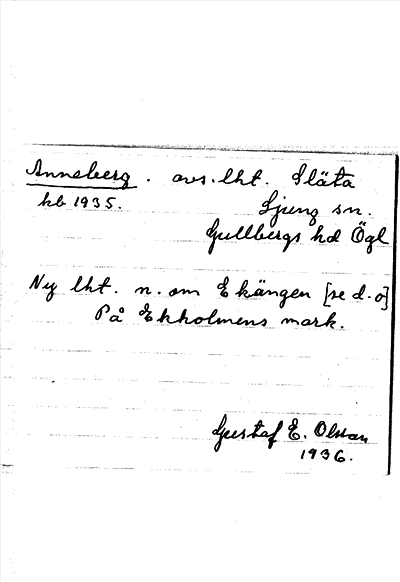 Anneberg. avs. lht. Släta
hb 1935. Ljung sn.
Gullbergs hd Ögl
Ny lht. n. om Ekängen [se d.o]
På Ekholmens mark.
Gustaf E. Olsson
1936.